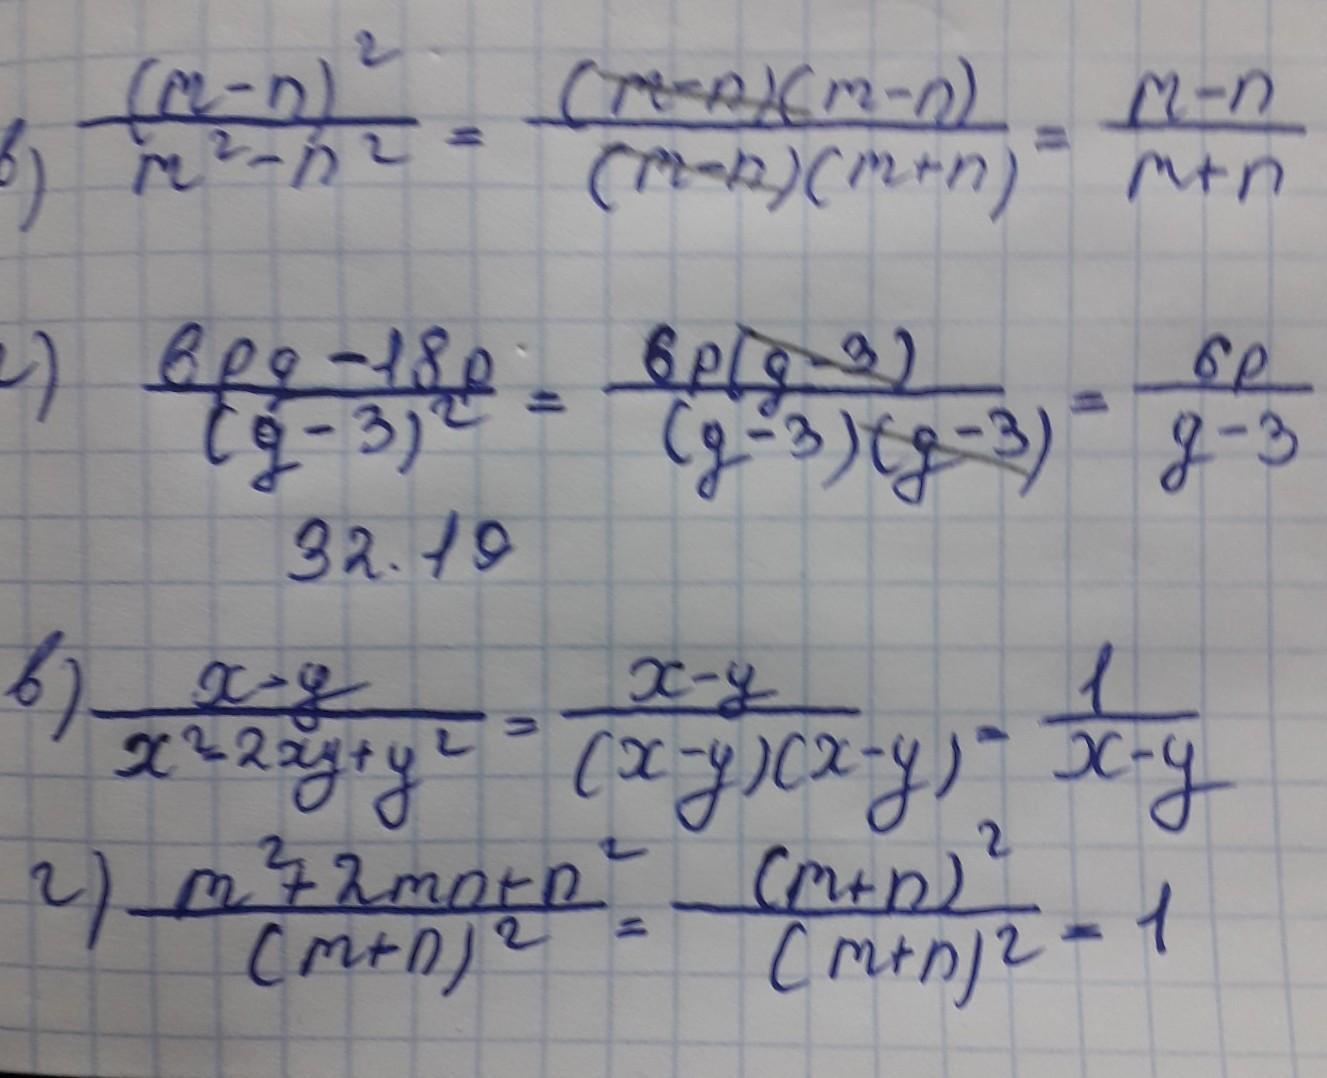 в) (m-n)²/m²-n² = (m-n)(m-n)/(m-n)(m+n) = m-n/m+n
г) 6pq-18p/(q-3)² = 6p(q-3)/(q-3)(q-3) = 6p/q-3
32.19
в) x-y/x²-2xy+y² = x-y/(x-y)(x-y) = 1/x-y
г) m²+2mn+n²/(m+n)² = (m+n)²/(m+n)² = 1